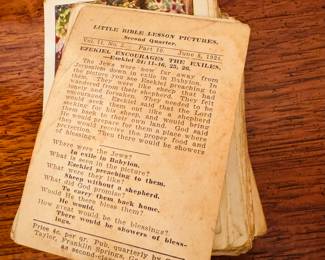 LITTLE BIBLE LESSON PICTURES,
Second Quarter.
Vol. 11, No. 2. Part 10. June 8, 1924.
EZEKIEL ENCOURAGES THE EXILES.
—Ezekiel 34: 11-16, 25, 26.
The Jews were now far away from
Jerusalem down in exiles in Babylon. In
the picture you see Ezekiel preaching to
them. They were like sheep that had
wandered from their shepherd. They felt
lonely and forsaken. They needed to be
encouraged. Ezekiel said that the Lord
would seek them out like a shepherd
seeking for his sheep, and would bring
them back to their own land. God said
He would prepare for them a place where
they would rest
protection. Then there would be showers
of blessings.
Where were the Jews?
In exile in Babylon.
What is seen in the picture?
Ezekiel preaching to them.
What were they like?
Sheep without a shepherd.
What did God promise?
To carry them back home.
Would He there bless them?
He would.
How great would be the blessings?
There would be showers of bless-
ings.
Price 4c. per qr. Pub. quarterly by
Taylor, Franklin Springs, Ga.
as second-class